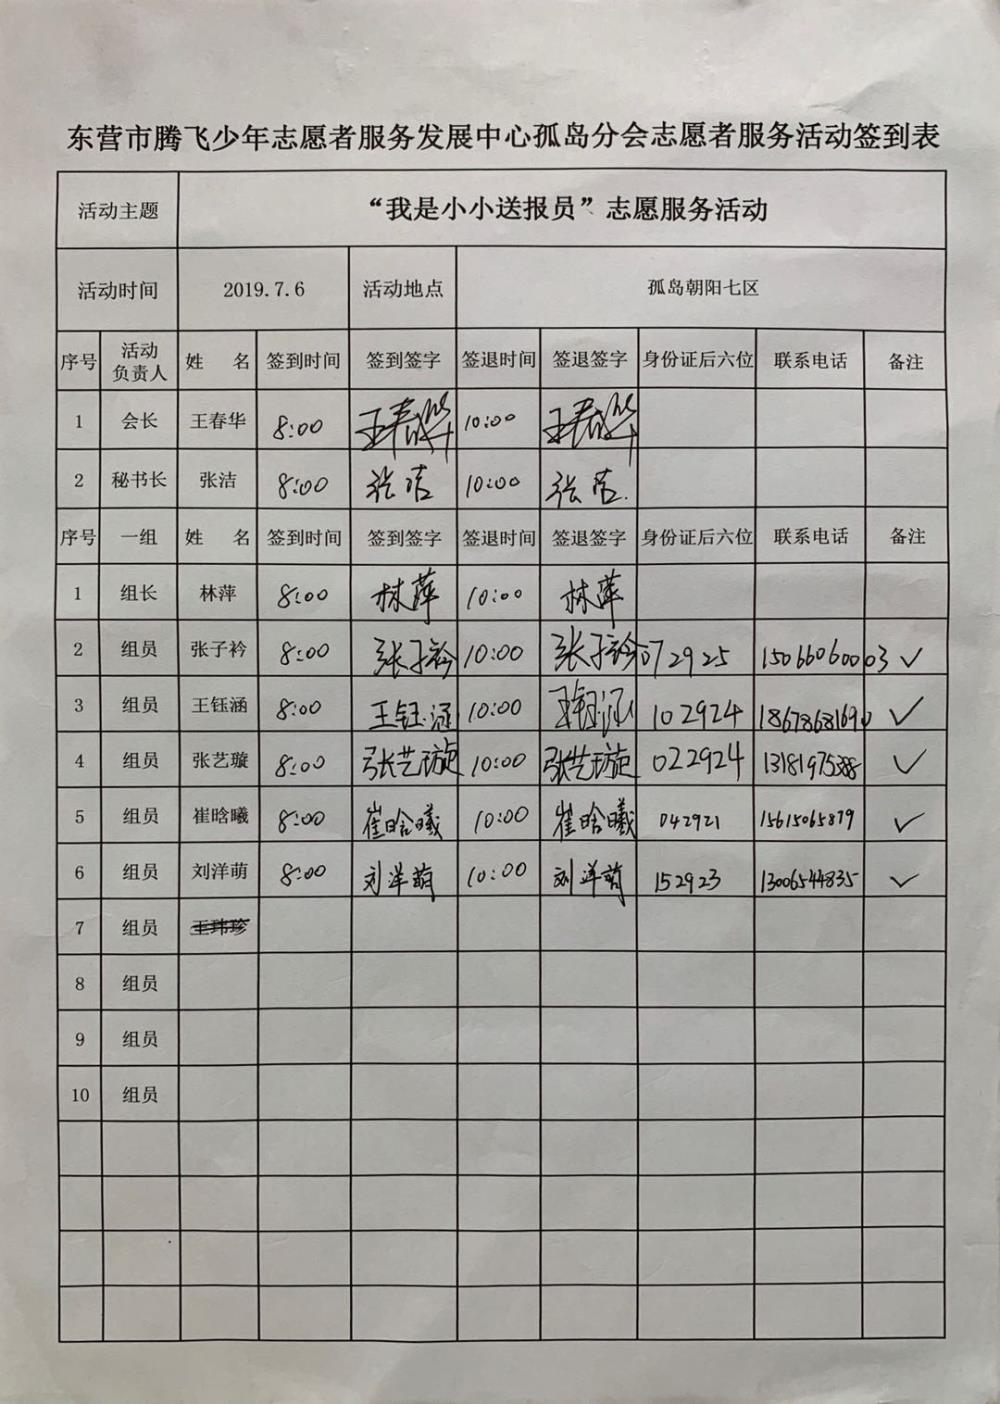 东营市腾飞少年志愿者服务发展中心孤岛分会志愿者服务活动签到表
活动主题 “我是小小送报员”志愿服务活动
活动时间 2019.7.6 活动地点 孤岛朝阳七区
序号 活动负责人 姓 名 签到时间 签到签字 签退时间 签退签字 身份证后六位 联系电话 备注
1 会长 王春华 8:00 王春华 10:00 王春华
2 秘书长 张洁 8:00 张洁 10:00 张洁.
序号 一组 姓 名 签到时间 签到签字 签退时间 签退签字 身份证后六位 联系电话 备注
1 组长 林萍 8:00 林萍 10:00 林萍
2 组员 张子衿 8:00 张子衿 10:00 张子衿 072925 15066060003 ✓
3 组员 王钰涵 8:00 王钰涵 10:00 王钰涵 102924 18678681690 ✓
4 组员 张艺璇 8:00 张艺璇 10:00 张艺璇 022924 13181975388 ✓
5 组员 崔晗曦 8:00 崔晗曦 10:00 崔晗曦 042921 15615065879 ✓
6 组员 刘洋萌 8:00 刘洋萌 10:00 刘洋萌 152923 13006544835 ✓
7 组员 王玮珍
8 组员
9 组员
10 组员